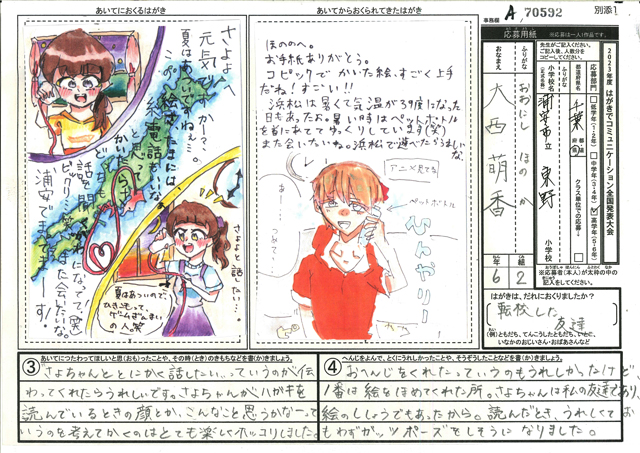 あいてにおくるはがき
あいてからおくられてきたはがき
事務欄
A70592
別添1
さよへ
元気ですか?、
夏はあついですねぇ…。
糸電話
浦安
さよと話したい…。
夏はあついので、
ひきこもって
ゲームざんまい
の人笑
ほのかへ。
お手紙ありがとう。
コピックでかいた絵、すごく上手
だね!すごい!!
浜松は暑くて気温が39度になった
日もあったよ。暑い時はペットボトル
を首にあててゆっくりしています(笑)
また会いたいね。浜松で遊べたらうれしい
な。
アニメ見てる
ペットボトル
ひんやりー
応募用紙
※応募は一人1作品です。
2023年度 はがきでコミュニケーション全国発表大会
先生がご記入ください。
人数分を
コピーしてください。
応募部門
低学年(1・2年)
中学年(3・4年)
高学年(5・6年)
クラス単位での応募
都道府県名
千葉
都道府県
ふりがな
小学校名
(正式名称)
浦安市立
東野
小学校
ふりがな
おおにし ほのか
おなまえ
大西 萌香
年
6
組
2
※応募者(本人)が太枠の中の
記入をしてください。
はがきは、だれにおくりましたか?
転校した
友達
(例)ともだち、てんこうしたともだち、いとこ、
いなかのおじいさん・おばあさんなど
③ あいてにつたわってほしいと思(おも)ったことや、その時(とき)のきもちなどを書(か)きましょう。
さよちゃんととにかく話したい…っていうのが伝
わってくれたらうれしいです。さよちゃんがハガキを
読んでいるときの顔とか、こんなこと思うかなーって
いうのを考えてかくのはとても楽しくホッコリしました。
④ へんじをよんで、とくにうれしかったことや、そうぞうしたことなどを書(か)きましょう。
おへんじをくれたっていうのもうれしかったけど、
1番は絵をほめてくれた所。さよちゃんは私の友達であり、
絵のししょうでもあったから。読んだとき、うれしくてお
もわずガッツポーズをしそうになりました。